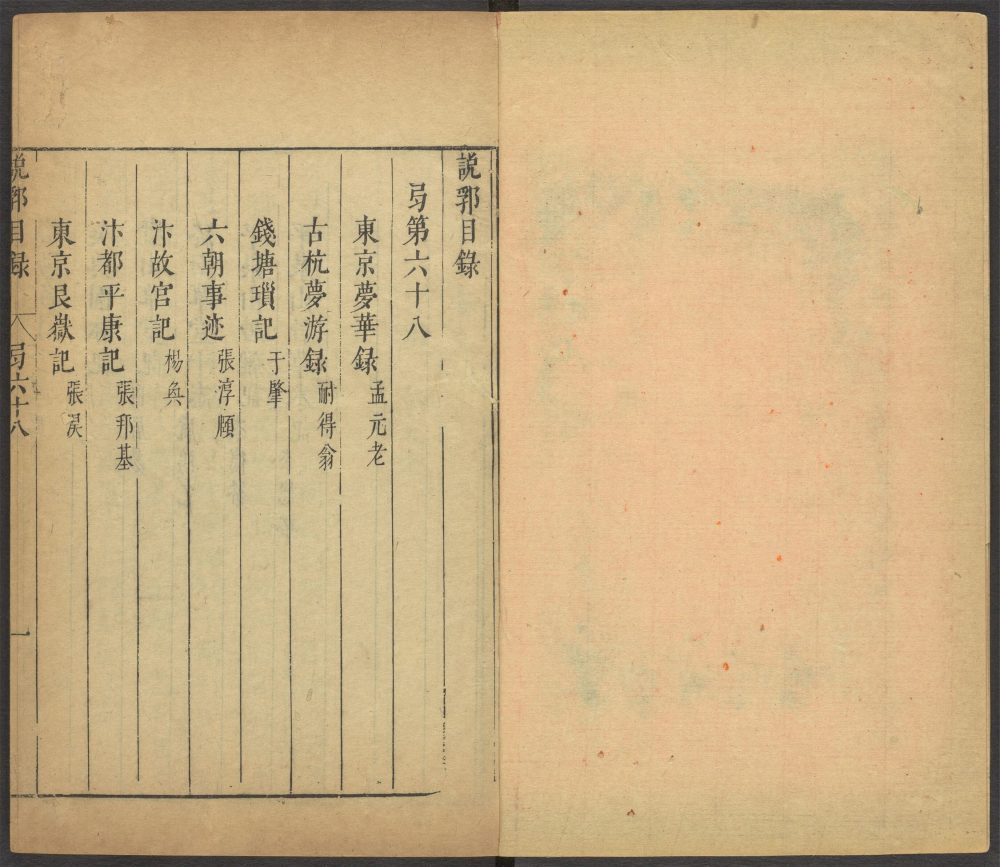 說郛目錄
弓第六十八
東京夢華錄 孟元老
古杭夢游錄 耐得翁
錢塘瑣記 于肇
六朝事迹 張淳頤
汴故宮記 楊奐
汴都平康記 張邦基
東京艮嶽記 張淏
說郛目錄 弓六十八 一